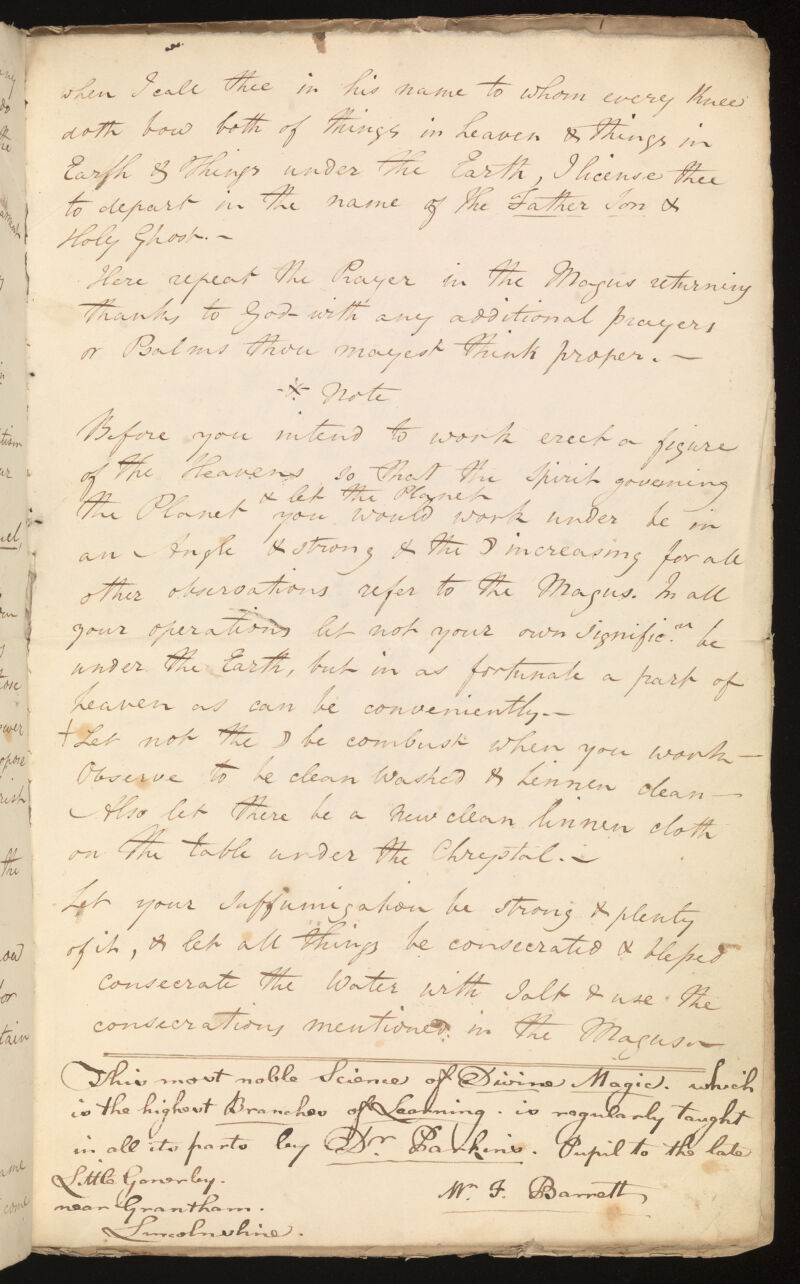 when I call thee in his name to whom every Knee
doth bow both of things in heaven & things in
Earth & Things under the Earth, I license thee
to depart in the name of the Father Son &
Holy Ghost. –
Here repeat the Prayer in the Magus returning
thanks to God with any additional prayers
or Psalms thou mayest think proper. –
Note
Before you intend to work erect a figure
of the Heavens so that the Spirit governing
& let the Planet
the Planet you would work under be in
an Angle & strong & the ☽ increasing for all
other observations refer to the Magus. In all
your operations let not your own Signific.or be
under the Earth, but in as fortunate a part of
heaven as can be conveniently. –
† Let not the ☽ be combust when you work –
Observe to be clean Washed & Linnen clean –
Also let there be a new clean linnen cloth
on the table under the Chrystal. –
Let your Suffumigation be strong & plenty
of it, & let all things be consecrated & blessed
consecrate the Water with Salt & use the
consecrations mentioned in the Magus –
This most noble Science of Divine Magic. which
is the highest Branches of Learning. is regularly taught
in all its parts by Dr. Parkins. Pupil to the late
Little Gonerby. Mr. F. Barrett
near Grantham.
Lincolnshire.